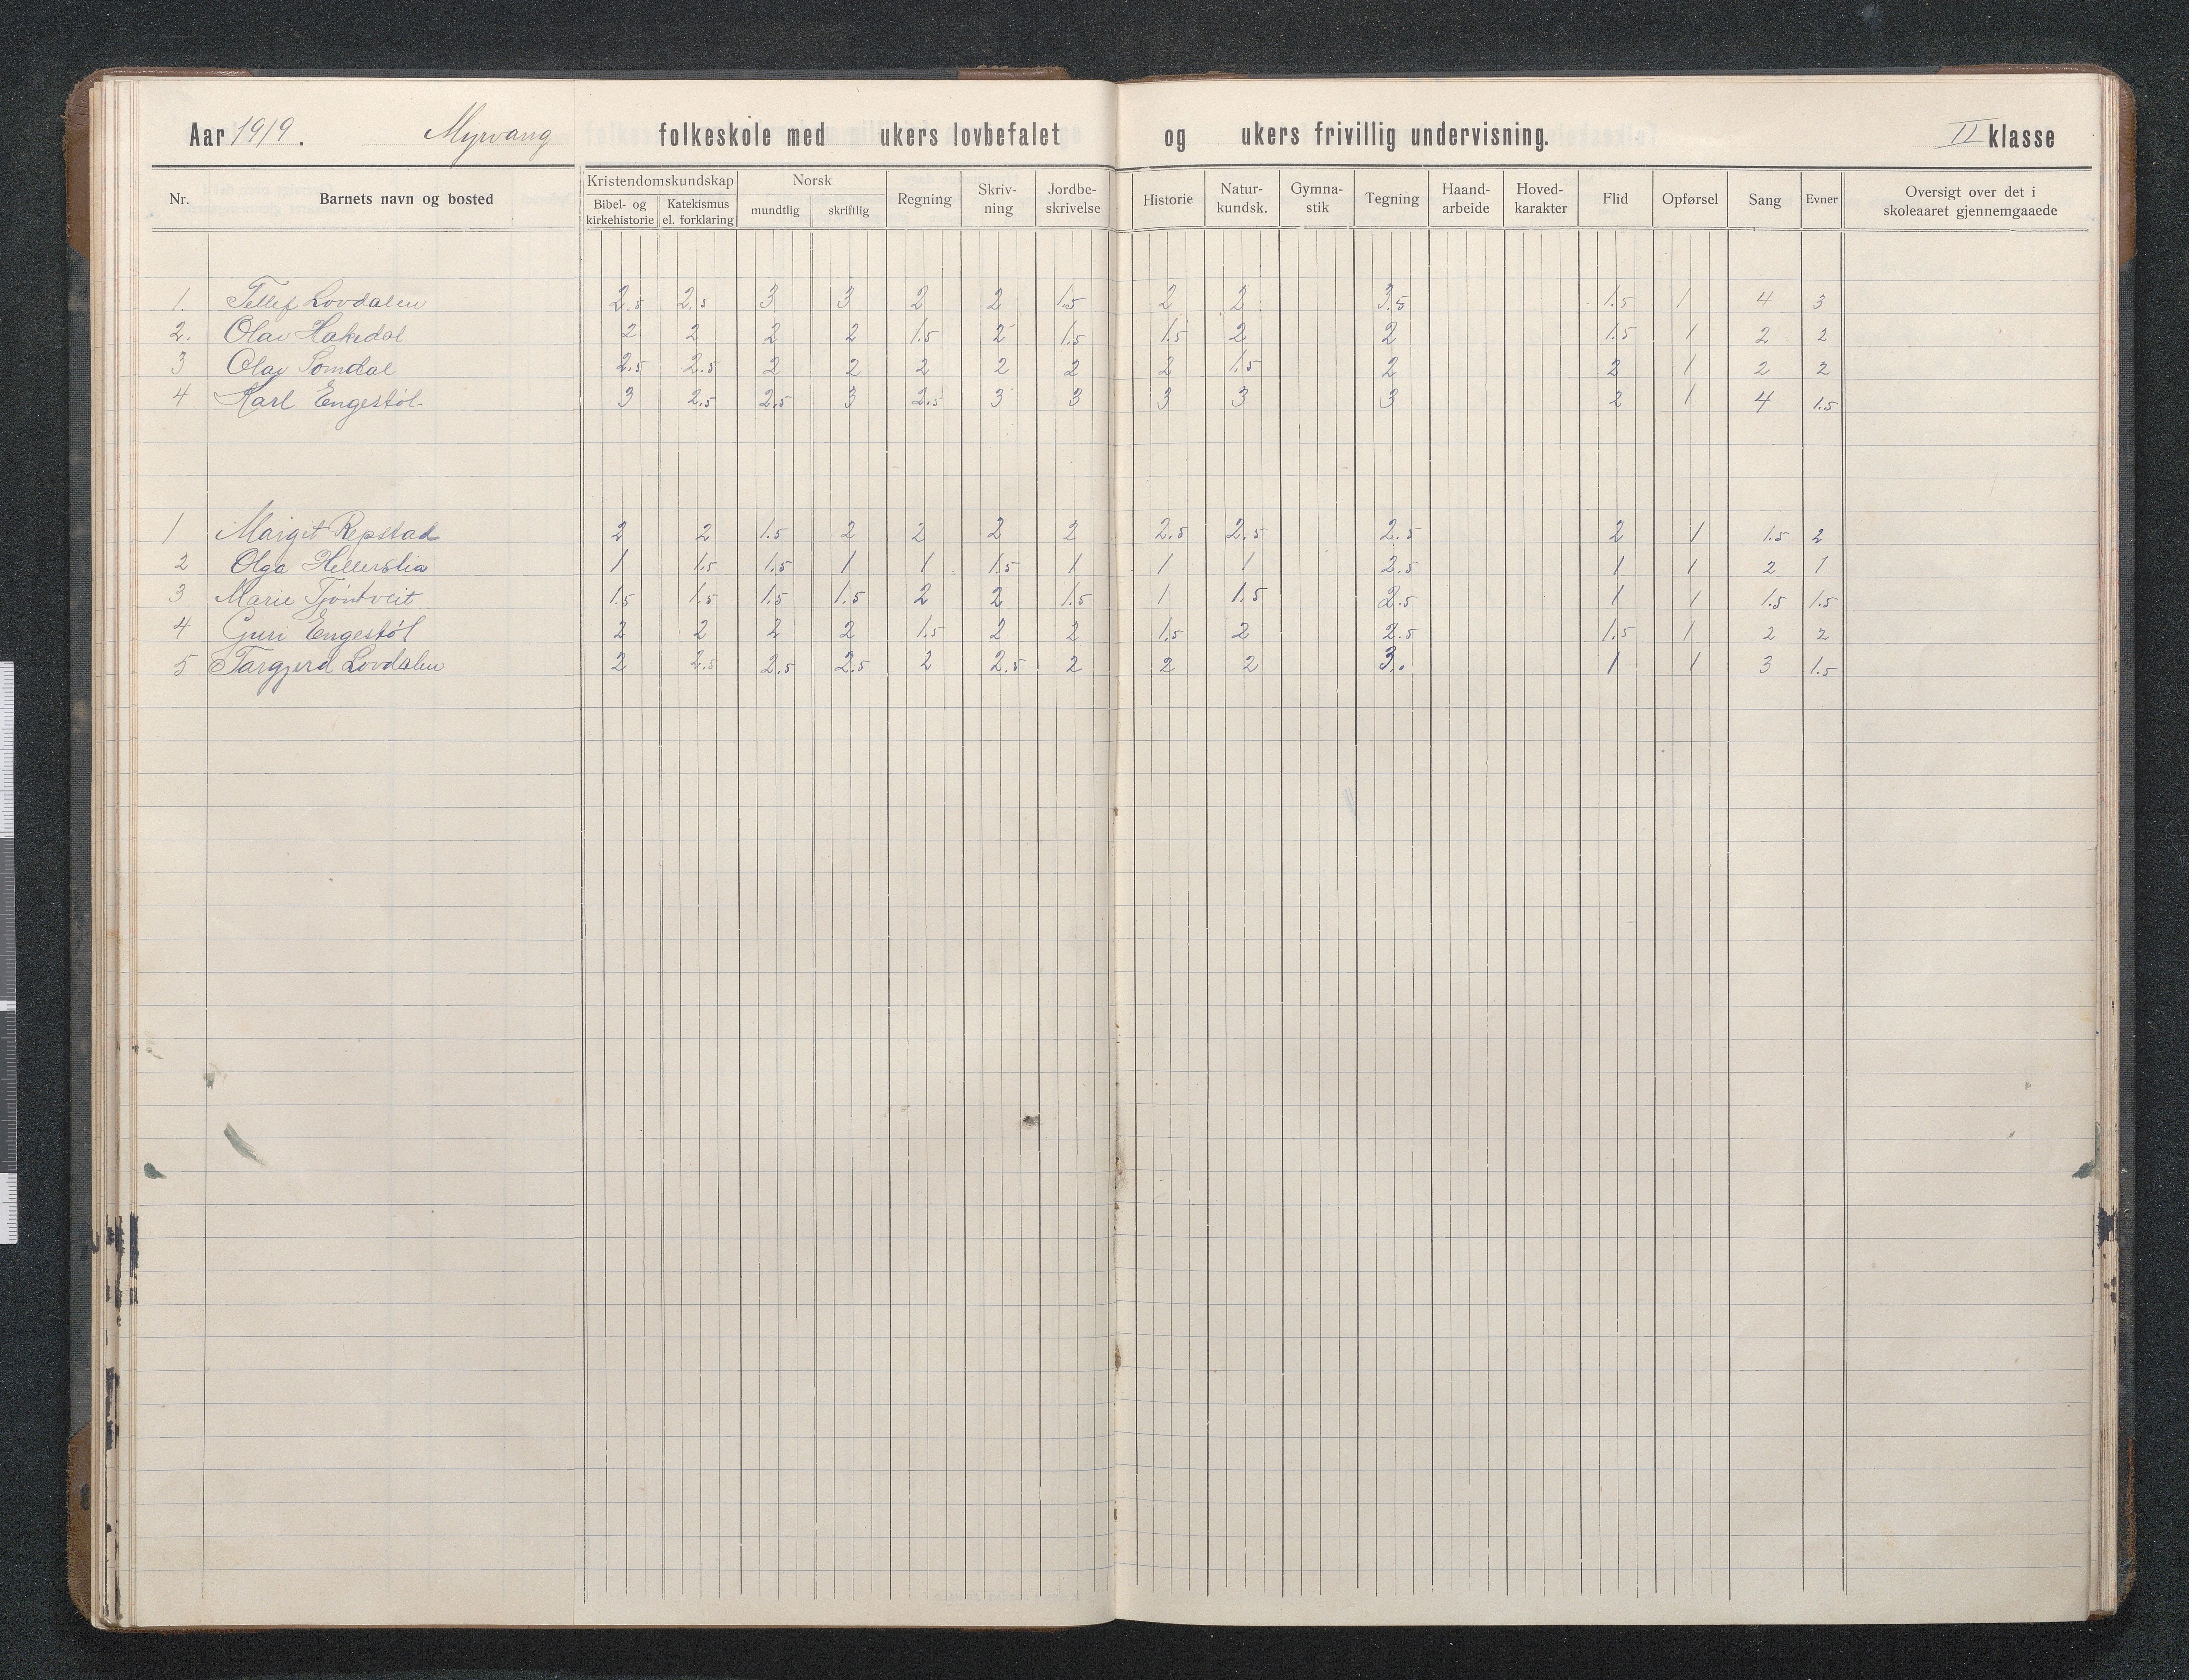 Aar 1919. Myrvang folkeskole med ukers lovbefalet og ukers frivillig undervisning. II klasse
Nr. Barnets navn og bosted Kristendomskundskap Bibel- og kirkehistorie Katekismus el. forklaring Norsk mundtlig skriftlig Regning Skriv-ning Jordbe-skrivelse Historie Natur-kundsk. Gymna-stik Tegning Haand-arbeide Hoved-karakter Flid Opførsel Sang Evner Oversigt over det i skoleaaret gjennemgaaede
1. Tellef Lovdalen 2.5 2.5 3 3 2 2 1.5 2 2 3.5 1.5 1 4 3
2. Olav Hakedal 2 2 2 2 1.5 2 1.5 1.5 2 2 1.5 1 2 2
3 Olav Somdal 2.5 2.5 2 2 2 2 2 2 1.5 2 2 1 2 2
4 Karl Engestøl 3 2.5 2.5 3 2.5 3 3 3 3 3 2 1 4 1.5
1 Margit Repstad 2 2 1.5 2 2 2 2 2.5 2.5 2.5 2 1 1.5 2
2 Olga Hellerslia 1 1.5 1.5 1 1 1.5 1 1 1 2.5 1 1 2 1
3 Marie Tjøntveit 1.5 1.5 1.5 1.5 2 2 1.5 1 1.5 2.5 1 1 1.5 1.5
4 Guri Engestøl 2 2 2 2 1.5 2 2 1.5 2 2.5 1.5 1 2 2
5 Targjerd Lovdalen 2 2.5 2.5 2.5 2 2.5 2 2 2 3. 1 1 3 1.5